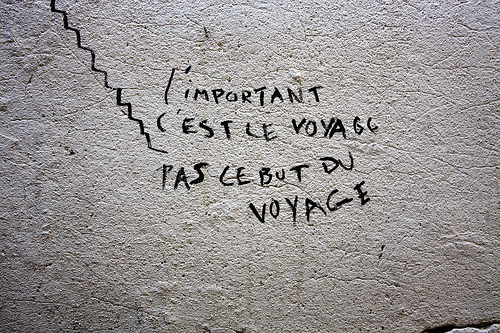 l'IMPORTANT
C'EST LE VOYAGE
PAS LE BUT DU
VOYAGE